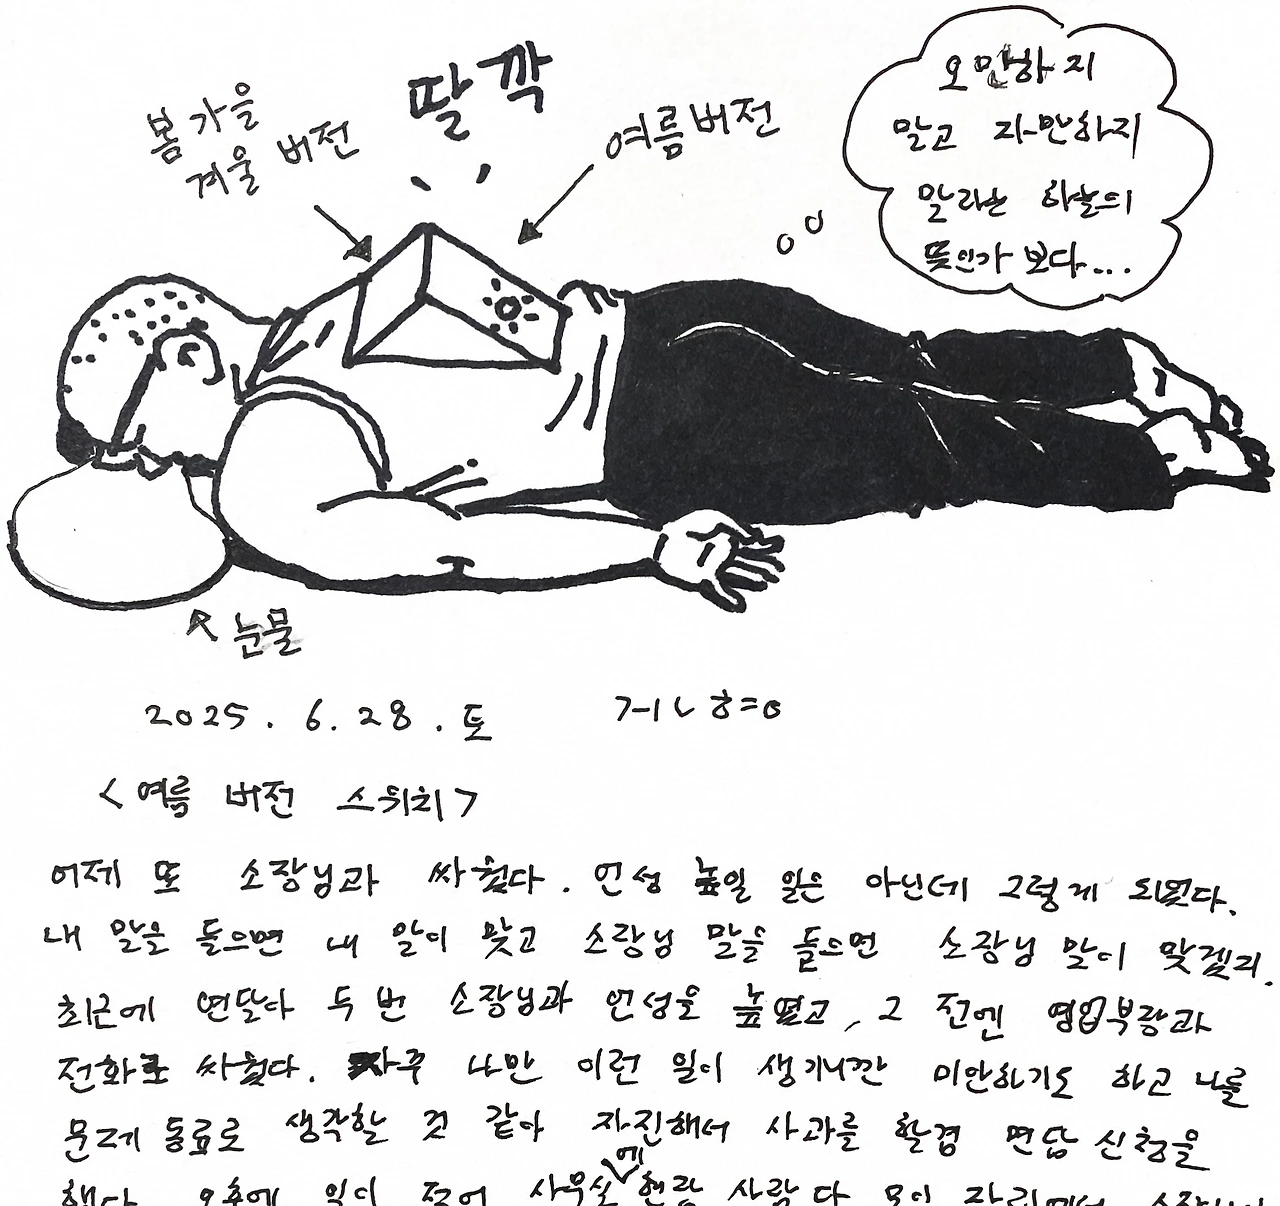 딸깍
봄 가을
겨울 버전
여름버전
오만하지
말고 자만하지
말라는 하늘의
뜻인가 보다...
눈물
2025. 6. 28. 토
ㄱㅣㄴㅎ=ㅇ
<여름 버전 스위치>
어제 또 소장님과 싸웠다. 언성 높일 일은 아닌데 그렇게 되었다.
내 말을 들으면 내 말이 맞고 소장님 말을 들으면 소장님 말이 맞겠지.
최근에 연달아 두 번 소장님과 언성을 높였고, 그 전엔 영업부랑과
전화로 싸웠다. 자꾸 나만 이런 일이 생기니깐 미안하기도 하고 나를
문제 동료로 생각할 것 같아 자진해서 사과를 할겸 면담 신청을
했다. 오후에 일이 적어 사무실에 현장 사람 다 모인 자리에서 소장님이